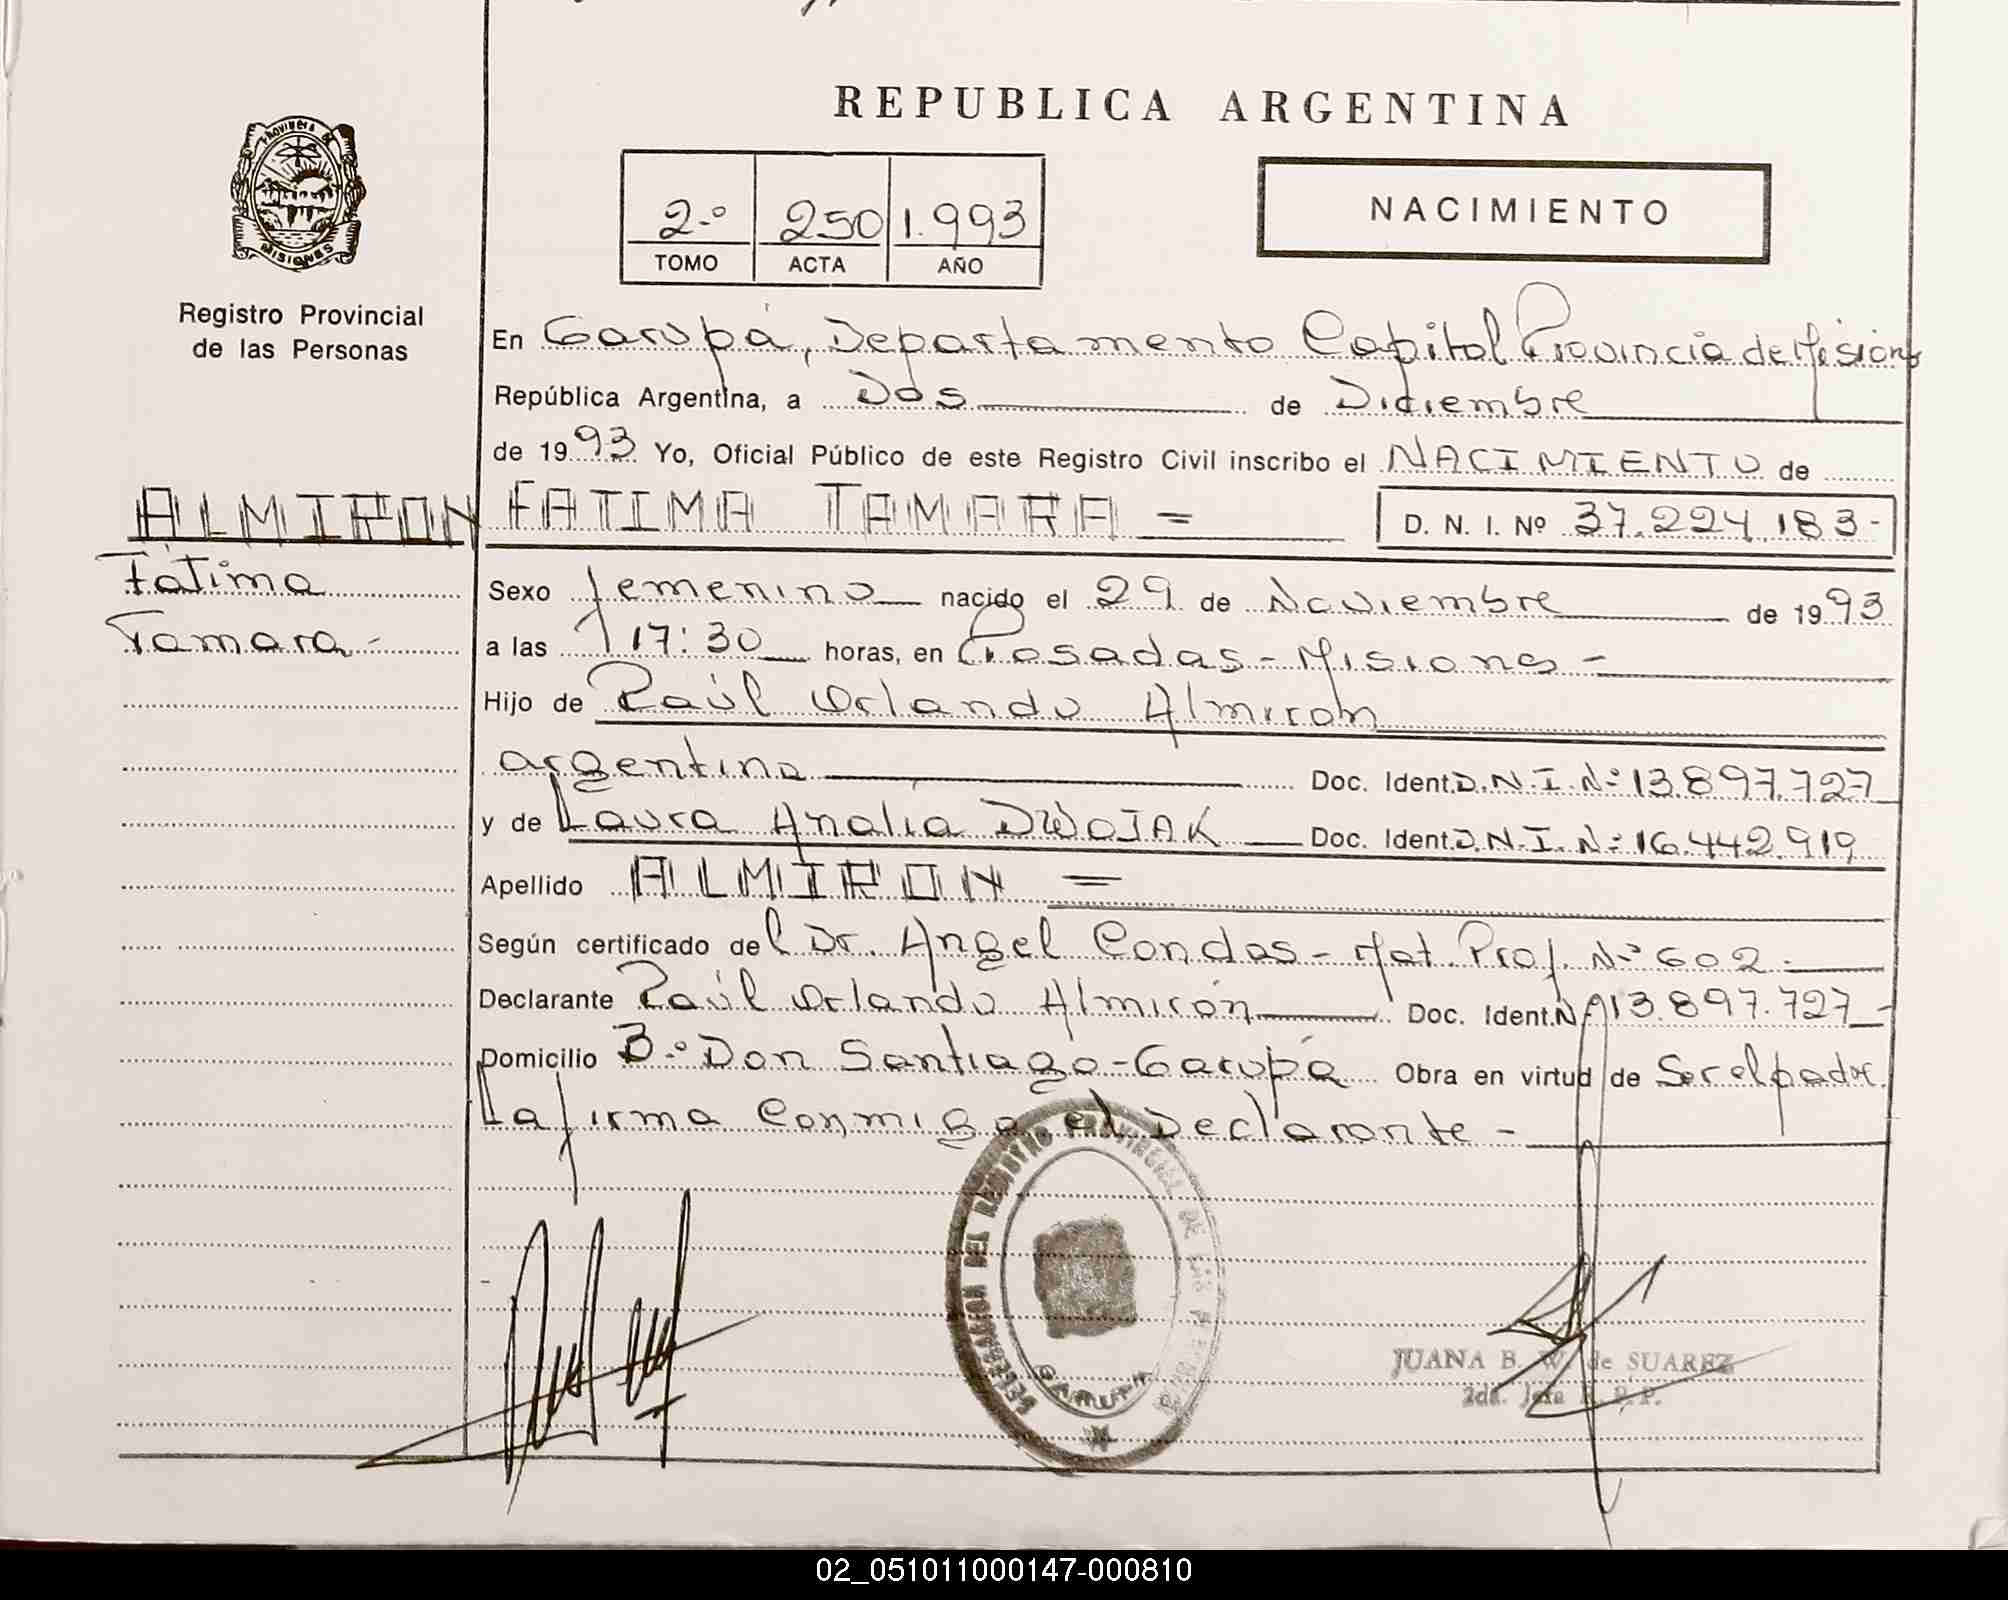 REPUBLICA ARGENTINA
Provincia de
MISIONES
Registro Provincial
de las Personas
2.º 250 1.993
TOMO ACTA AÑO
NACIMIENTO
En Garupá, Departamento Capital Provincia de Misiones
República Argentina, a Dos de Diciembre
de 1993 Yo, Oficial Público de este Registro Civil inscribo el NACIMIENTO de
ALMIRON FATIMA TAMARA =
D. N. I. Nº 37.224.183-
Fátima
Tamara-
Sexo femenino nacido el 29 de Noviembre de 1993
a las 17:30 horas, en Posadas - Misiones -
Hijo de Raúl Orlando Almirón
argentino Doc. Ident. D.N.I. Nº 13.897.727
y de Laura Analía DWOJAK Doc. Ident. D.N.I. Nº 16.442.919
Apellido ALMIRÓN =
Según certificado del Dr. Angel Condos - Mat. Prof. Nº 602.
Declarante Raúl Orlando Almirón Doc. Ident. Nº 13.897.727-
Domicilio Bº Don Santiago - Garupá Obra en virtud de Ser el padre.
La firma conmigo el Declarante -
DELEGACION DEL REGISTRO PROVINCIAL DE LAS PERSONAS
GARUPA
JUANA B. W. de SUAREZ
2da. Jefa R. P. P.
02_051011000147-000810